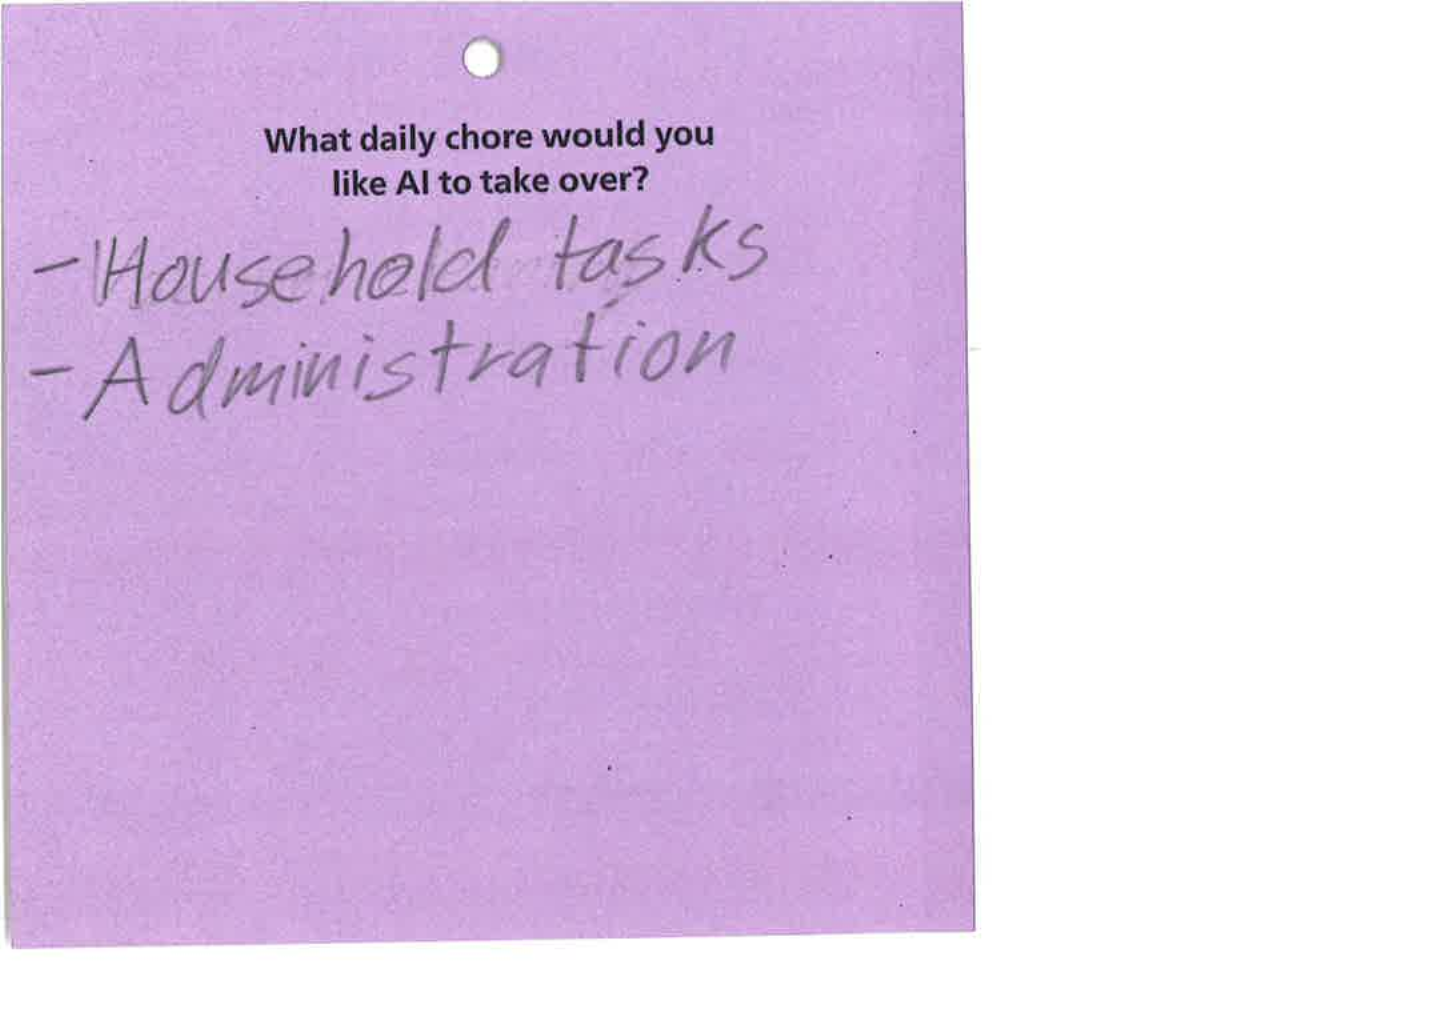 What daily chore would you
like AI to take over?
- Household tasks
- Administration